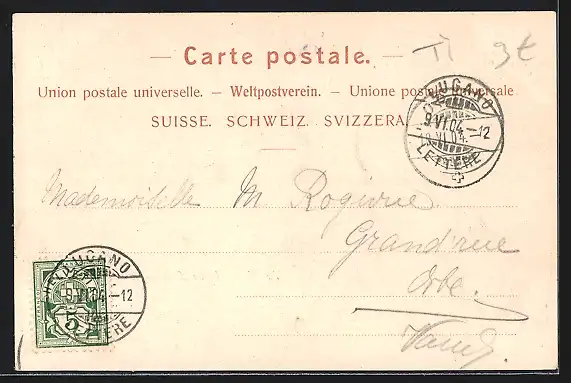 — Carte postale. —
TI 3€
Union postale universelle. — Weltpostverein. — Unione postale universale
SUISSE. SCHWEIZ. SVIZZERA.
LUGANO
9.VI.04.–12
LETTERE
Mademoiselle M Rogivue
Grand'rue
Orbe.
Vaud
LUGANO
9.VI.04.–12
LETTERE
HELVETIA
5